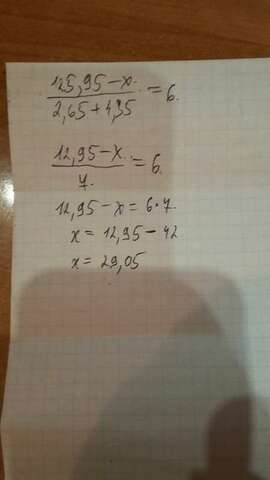 125,95 - x / 2,65 + 4,35 = 6.
12,95 - x / 7. = 6.
12,95 - x = 6 · 7.
x = 12,95 - 42
x = 29,05